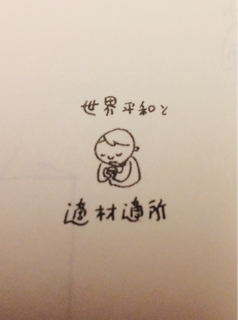 世界平和と
適材適所